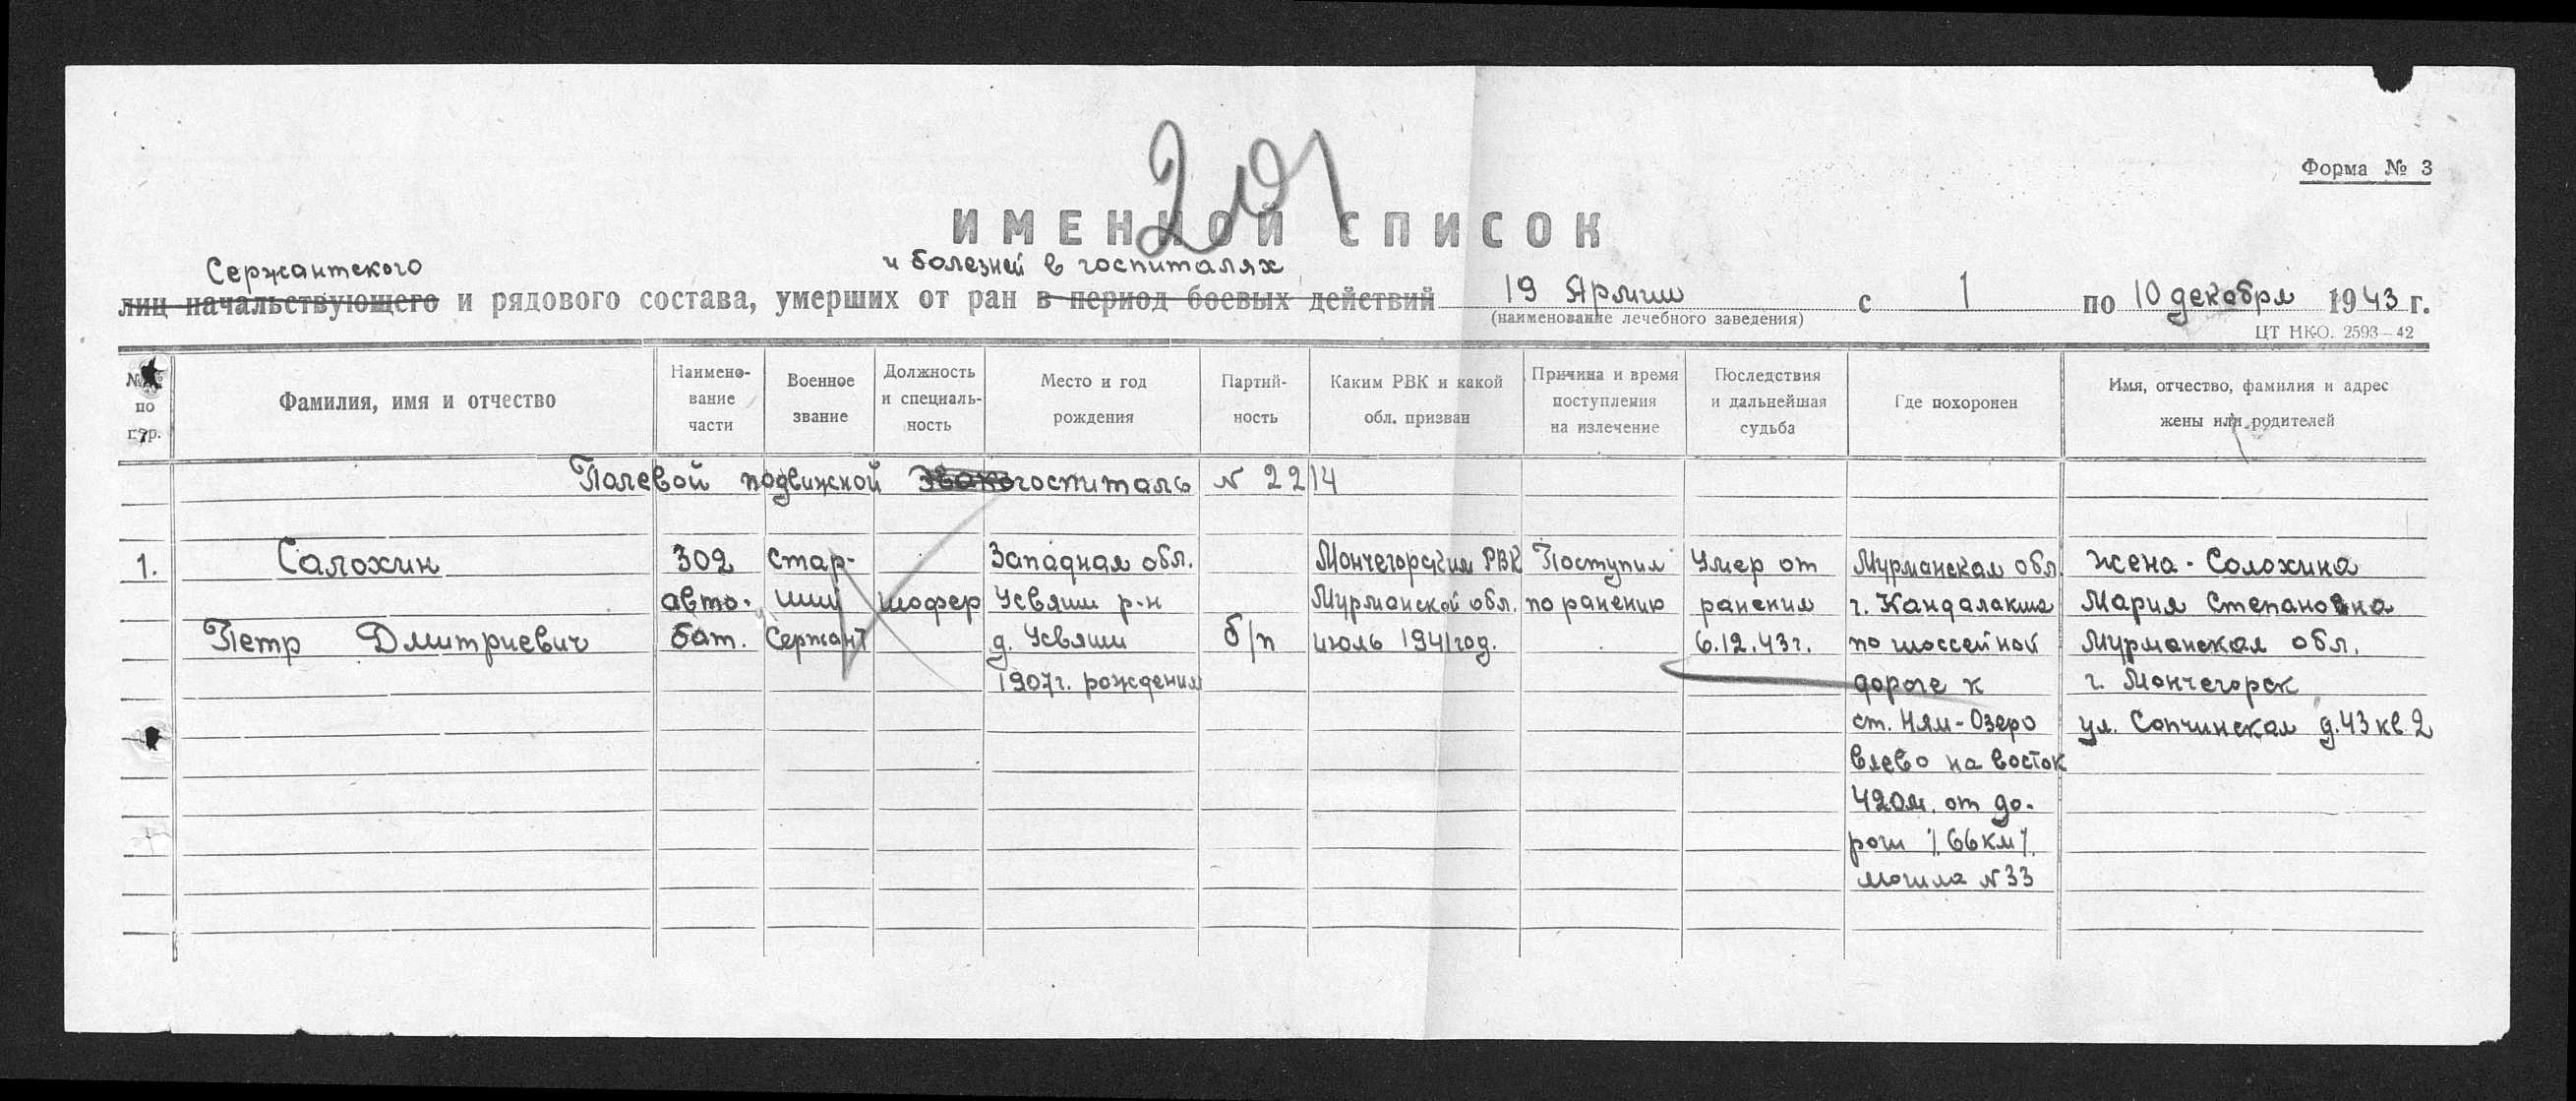 201
Форма № 3
ИМЕННОЙ СПИСОК
Сержантского
и болезней в госпиталях
лиц начальствующего и рядового состава, умерших от ран в период боевых действий 19 Армии с 1 по 10 декабря 1943 г.
(наименование лечебного заведения)
ЦТ НКО. 2593—42
№№ по пор.
Фамилия, имя и отчество
Наимено-
вание
части
Военное
звание
Должность
и специаль-
ность
Место и год
рождения
Партий-
ность
Каким РВК и какой
обл. призван
Причина и время
поступления
на излечение
Последствия
и дальнейшая
судьба
Где похоронен
Имя, отчество, фамилия и адрес
жены или родителей
Полевой подвижной Эвакогоспиталь № 2214
1.
Салохин
Петр Дмитриевич
302
авто-
бат.
Стар-
ший
Сержант
шофер
Западная обл.
Усвяты р-н
д. Усвяты
1907г. рождения
б/п
Мончегорским РВК
Мурманской обл.
июль 1941год.
Поступил
по ранению
Умер от
ранения
6.12.43г.
Мурманская обл.
г. Кандалакша
по шоссейной
дороге к
ст. Ням-Озеро
влево на восток
420м. от до-
роги /66км/.
могила №33
жена - Солохина
Мария Степановна
Мурманская обл.
г. Мончегорск
ул. Сопчинская д.43 кв 2